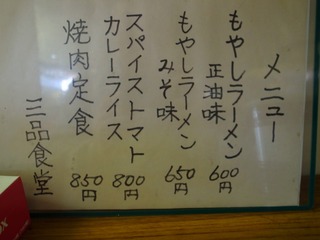 メニュー
もやしラーメン
正油味
600円
もやしラーメン
みそ味
650円
スパイストマト
カレーライス
800円
焼肉定食
850円
三品食堂